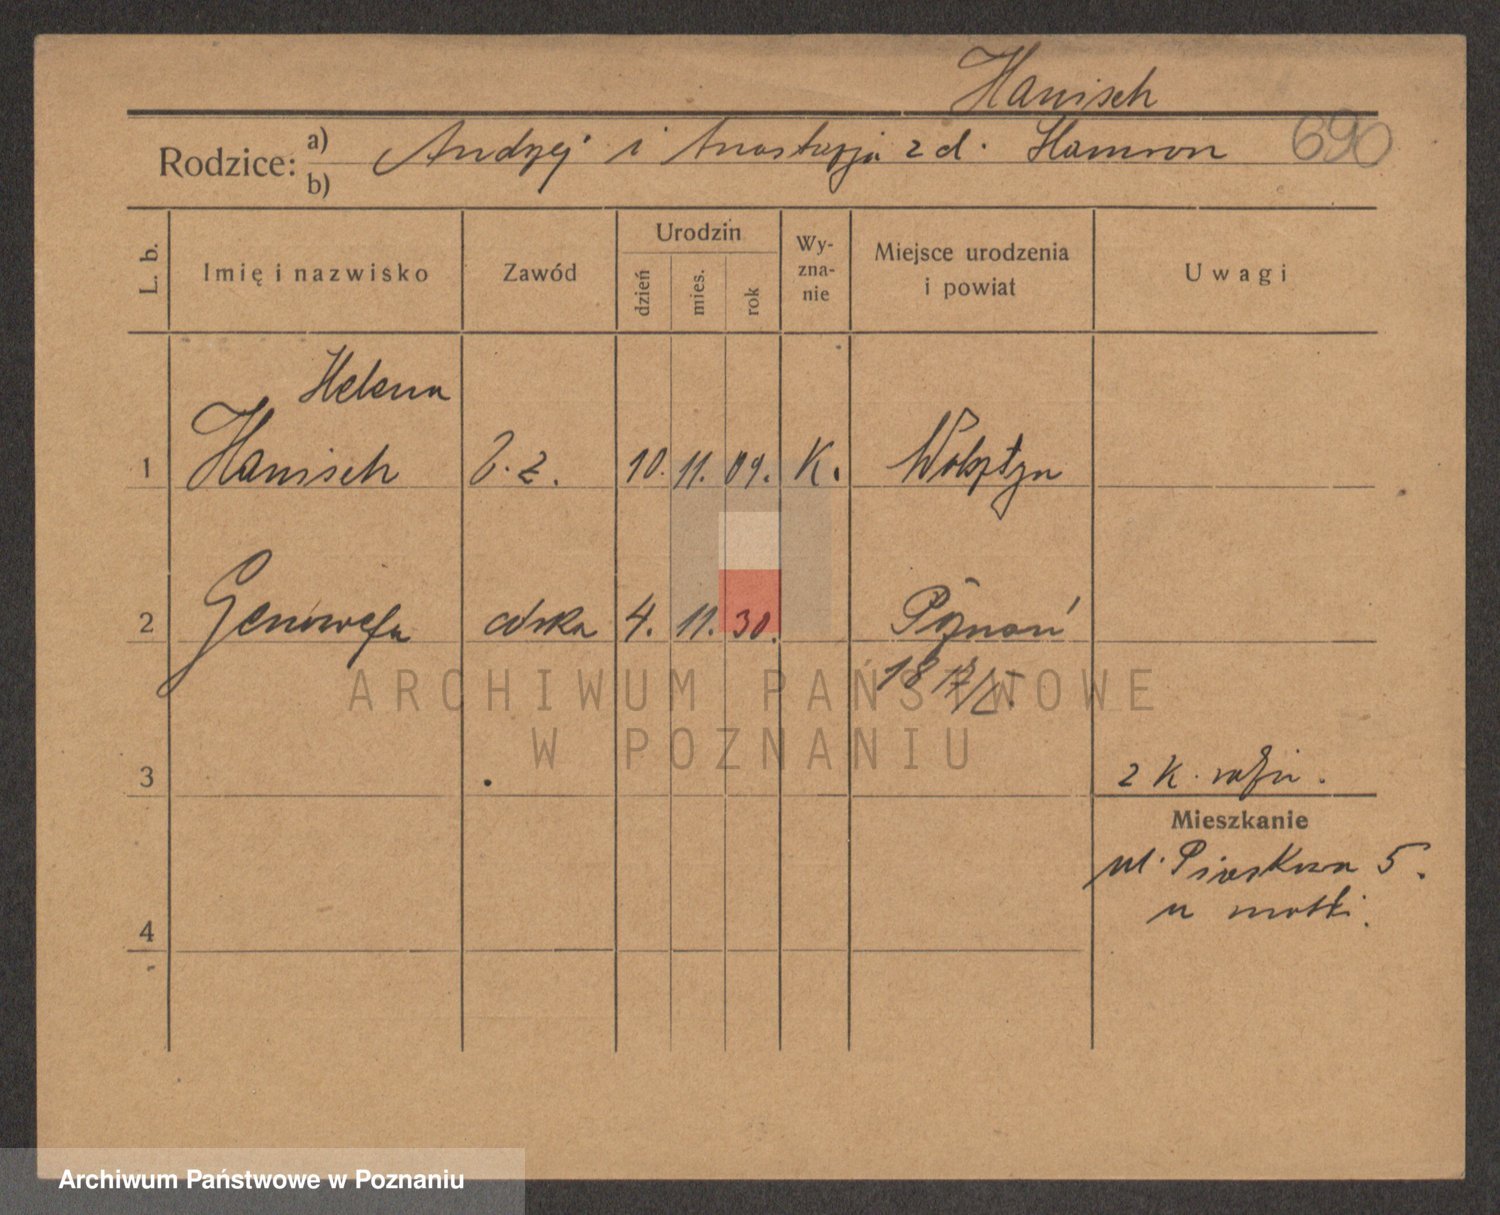 Hanisch
Rodzice: a) Andrzej i Anastazja z d. Hamron 690
b)
L. b. Imię i nazwisko Zawód Urodzin dzień mies. rok Wy-zna-nie Miejsce urodzenia i powiat Uwagi
Helena
1 Hanisch b. z. 10. 11. 09. K. Wolsztyn
2 Genowefa córka 4. 11. 30. Poznań
18
3 . 2 K.
Mieszkanie
ul. Piaskowa 5.
u matki.
4
ARCHIWUM PAŃSTWOWE
W POZNANIU
Archiwum Państwowe w Poznaniu